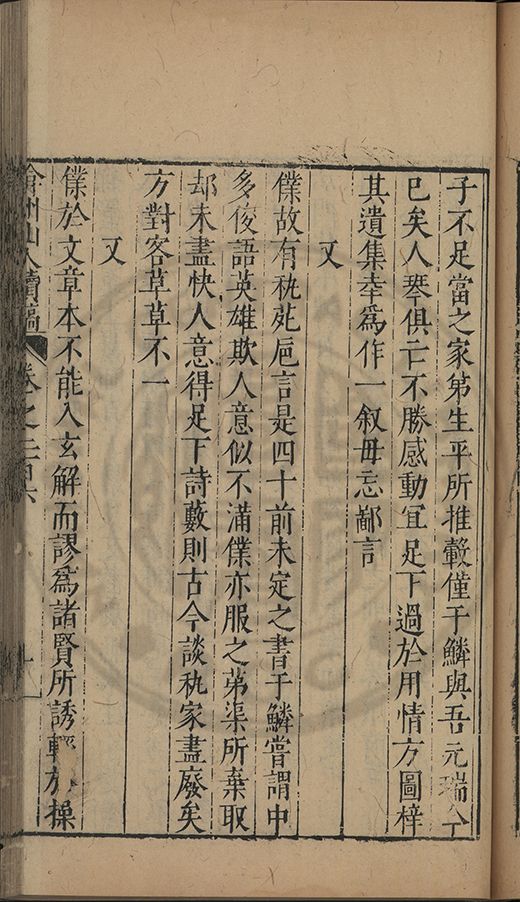 子不足當之家第生平所推轂僅于鱗與吾元瑞今
已矣人琴俱亡不勝感動冝足下過於用情方圖梓
其遺集幸爲作一叙毋忘鄙言
又
僕故有秇苑巵言是四十前未定之書于鱗嘗謂中
多俊語英雄欺人意似不滿僕亦服之苐渠所棄取
却未盡快人意得足下詩藪則古今談秇家盡廢矣
方對客草草不一
又
僕於文章本不能入玄解而謬爲諸賢所誘輕於操
弇州山人續稿
卷之二百六